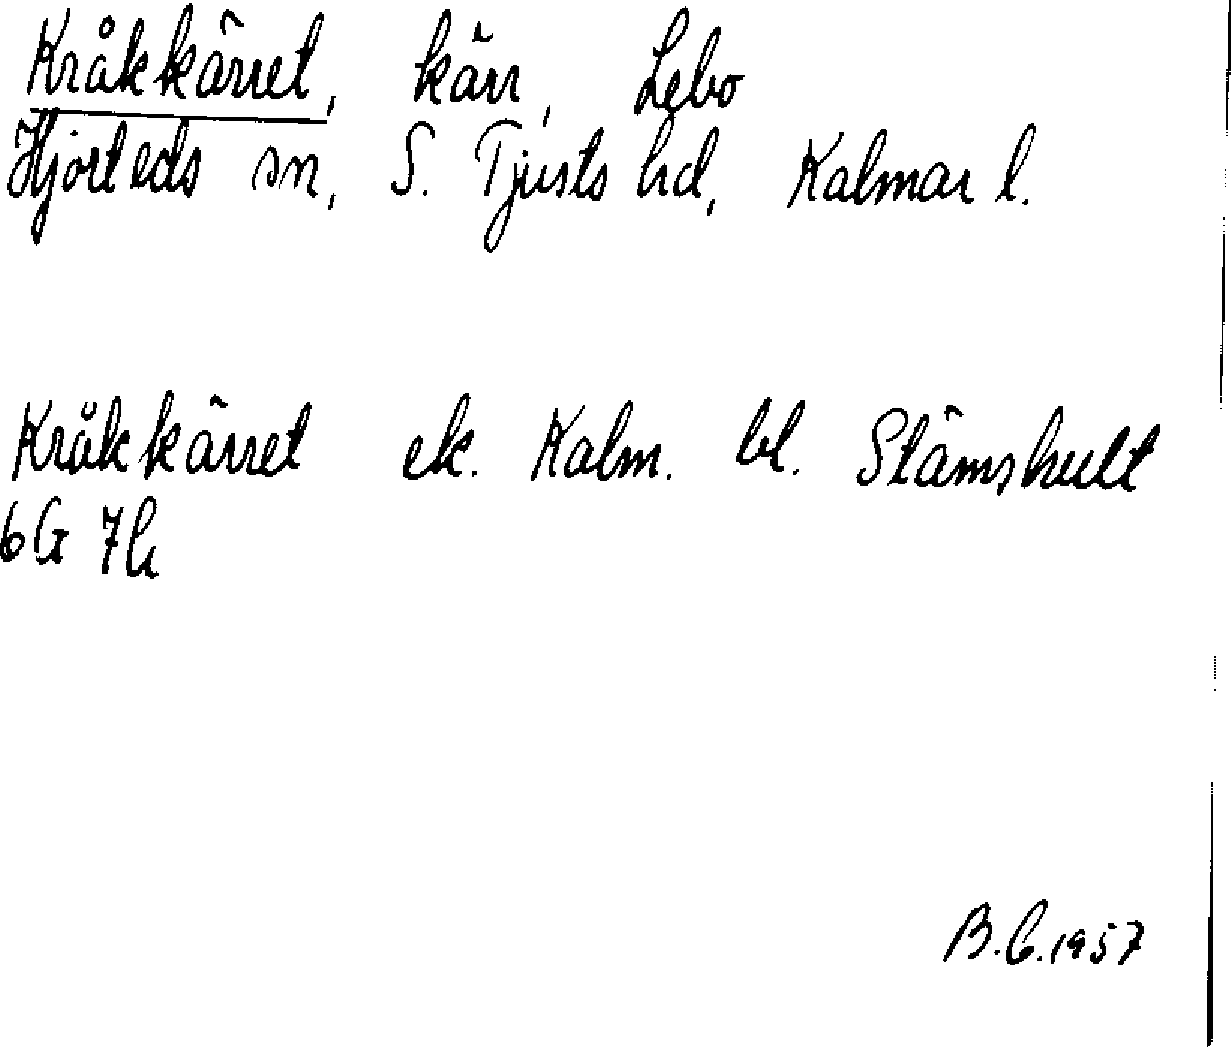 Kråkkärret, kärr, Lebo
Hjorteds sn, S. Tjusts hd, Kalmar l.
Kråkkärret ek. Kalm. bl. Stämshult
6G 7h
B.C.1957